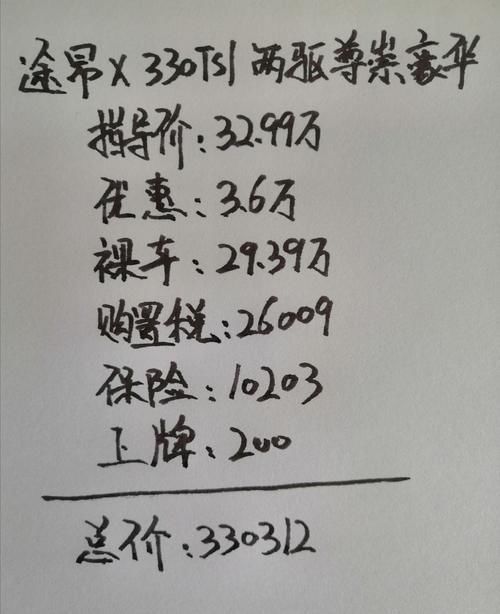 途昂X 330TSl 两驱尊崇豪华
指导价:32.99万
优惠:3.6万
裸车:29.39万
购置税:26009
保险:10203
上牌:200
总价:330312